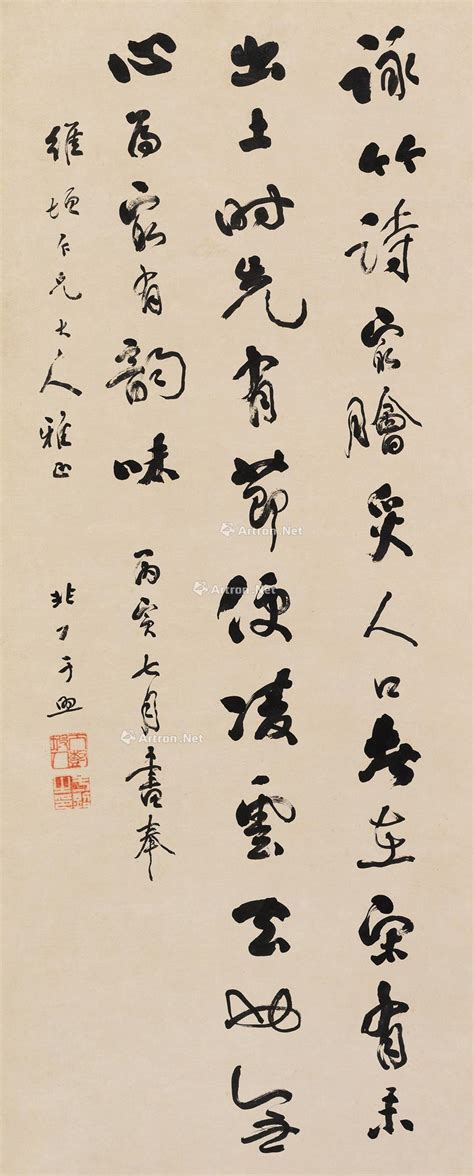 詠竹詩最膾炙人口者在宋有未
出土時先有節便凌雲去也無
心為最有韻味 丙寅七月書奉
維垣仁兄大人雅正 非厂于照
Artron.Net
Artron.Net
Artron.Net